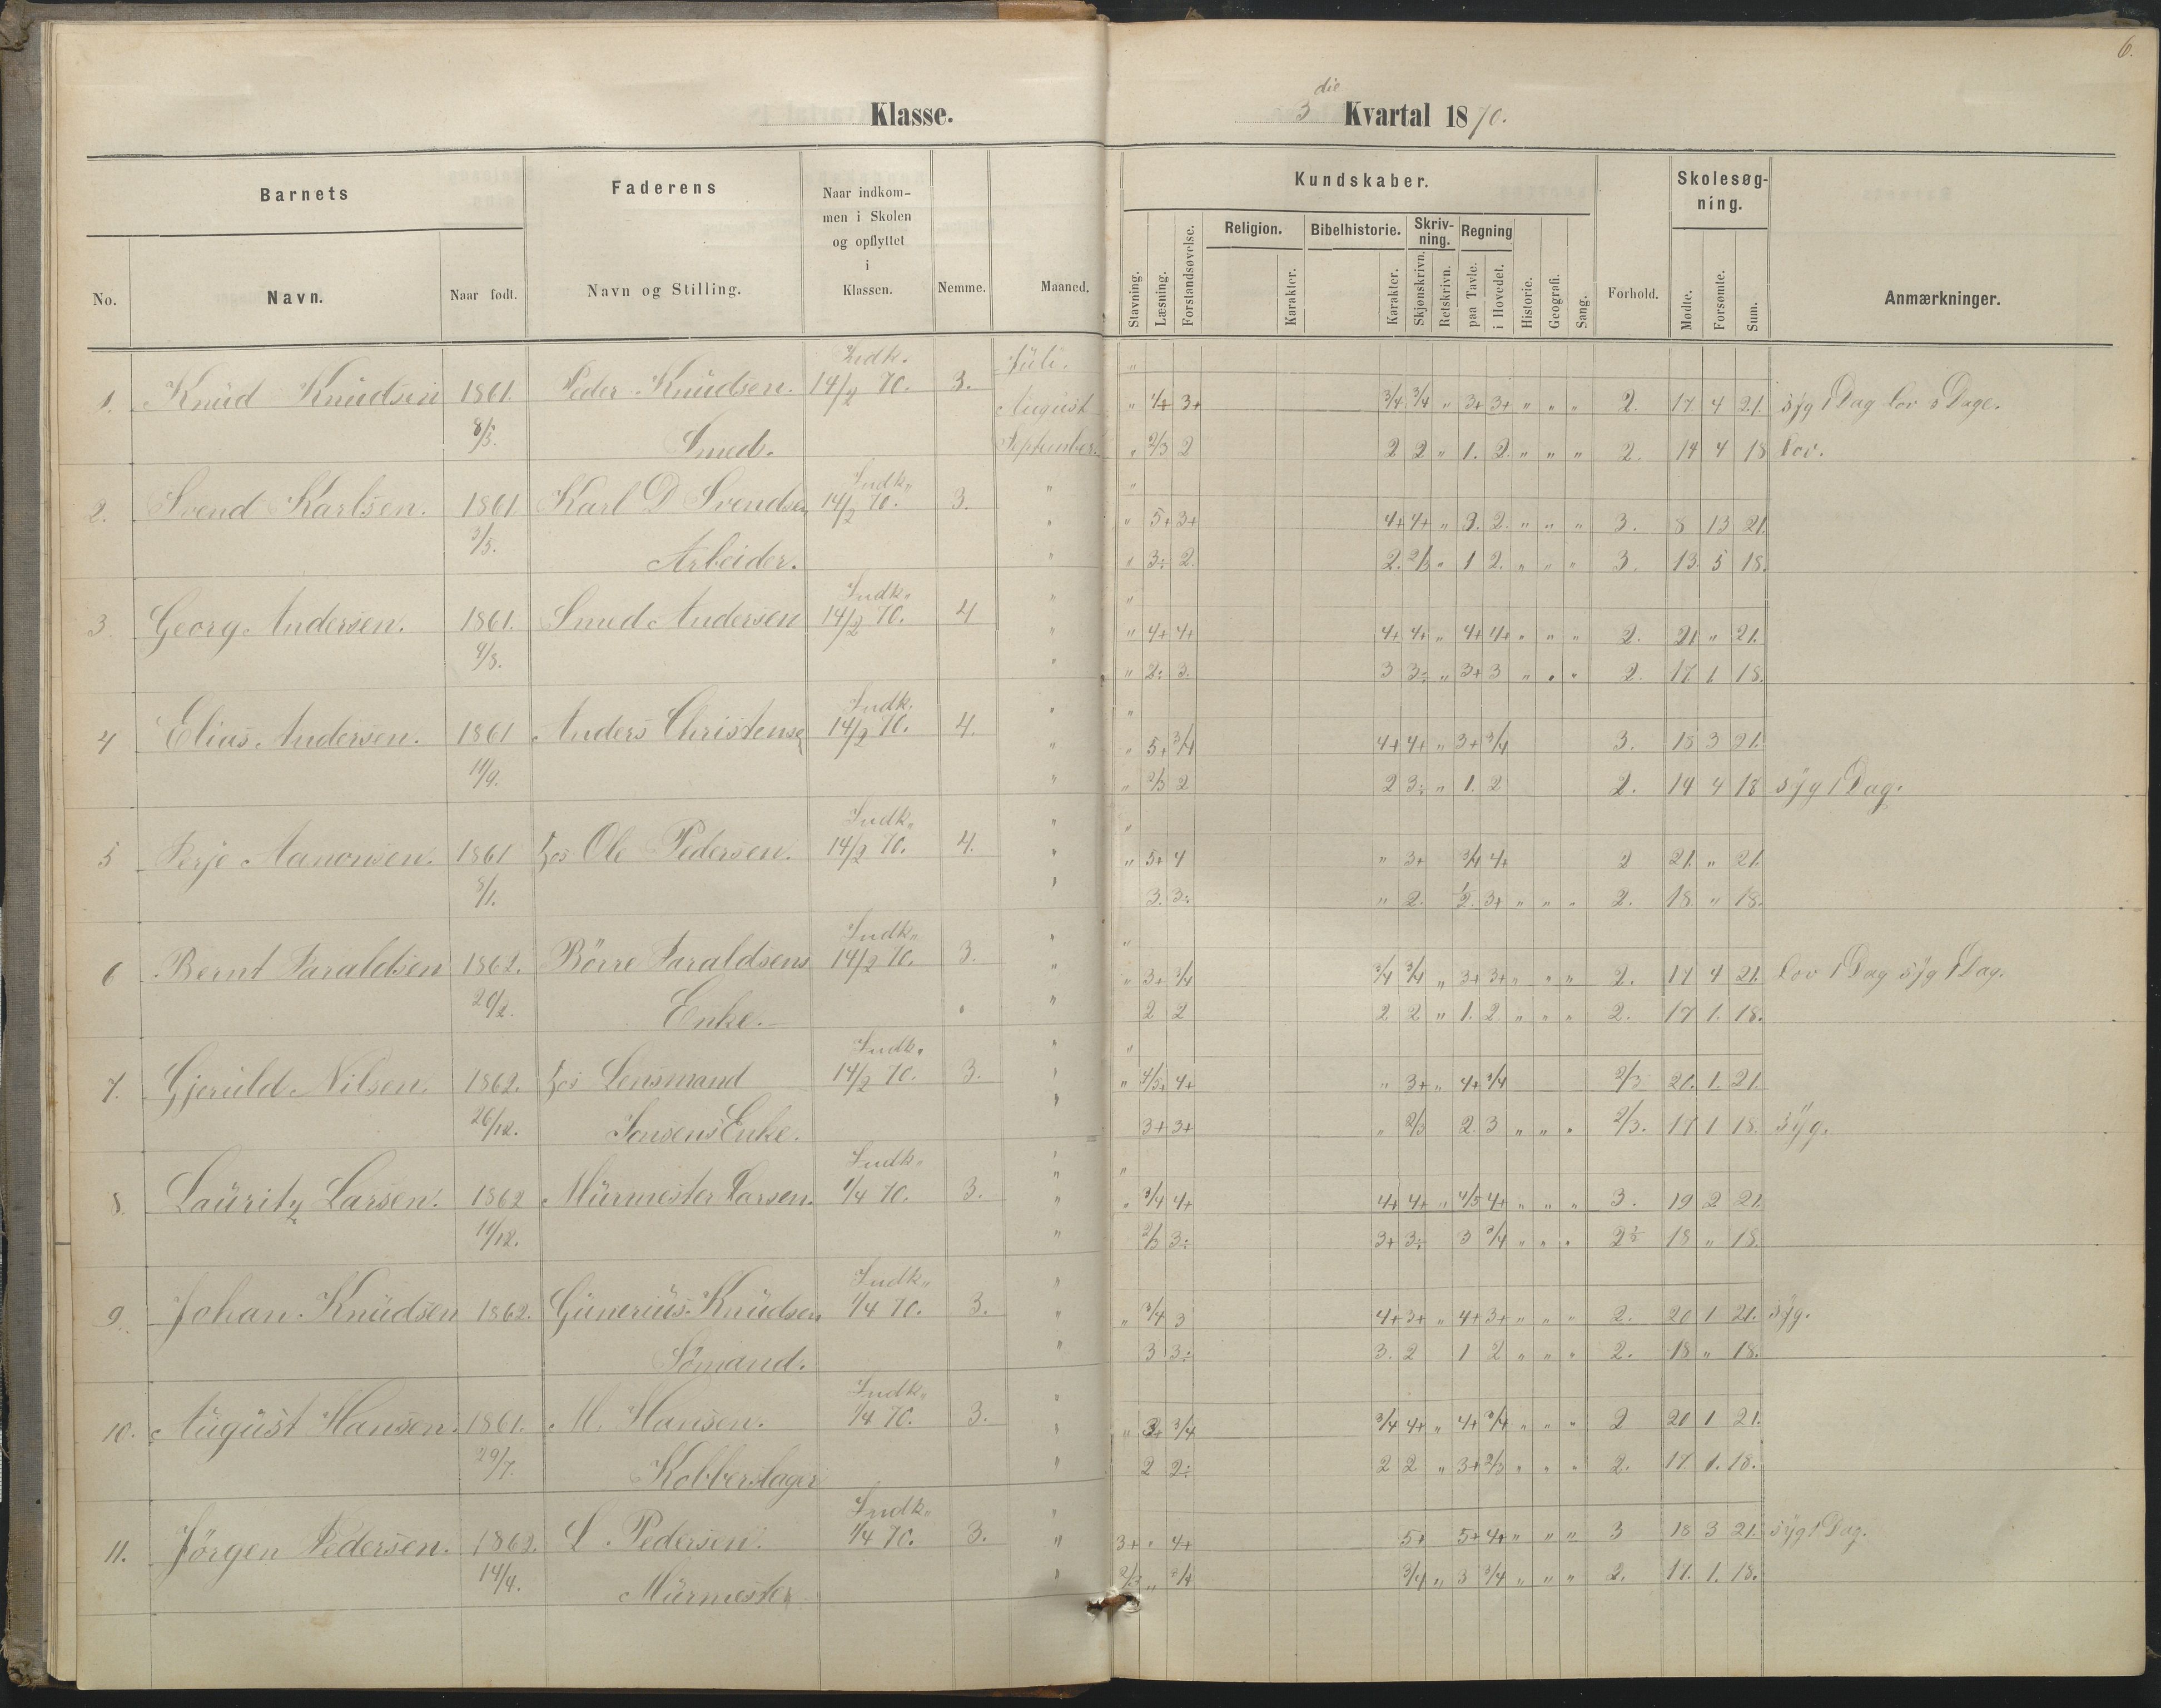 6.
Klasse.
3 die Kvartal 1870.
Barnets
Faderens
Naar indkommen i Skolen og opflyttet i Klassen.
Nemme.
Maaned.
Kundskaber.
Forhold.
Skolesøgning.
Anmærkninger.
No.
Navn.
Naar født.
Navn og Stilling.
Stavning.
Læsning.
Forstandsøvelse.
Religion.
Karakter.
Bibelhistorie.
Karakter.
Skrivning.
Skjønskrivn.
Retskrivn.
Regning
paa Tavle.
i Hovedet.
Historie.
Geografi.
Sang.
Mødte.
Forsømte.
Sum.
Indk. Juli. "
1. Knud Knudsen 1861. Peder Knudsen. 14/2 70. 3. August " 3+ 3/4 3/4 " 3+ 3+ " " " 2. 17 4 21. syg 1 Dag lov 3 Dage.
8/5. Smed. September. " 2/3 2 2 2 " 1. 2. " " " 2. 14 4 18 lov.
Indk. " "
2. Svend Karlsen. 1861 Karl D Svendsen 14/2 70. 3. " " 5+ 3+ 4+ 4+ " 3. 2. " " " 3. 8 13 21.
3/5. Arbeider. " " 3÷ 2. 2. 2/3 " 1 2. " " " 3. 13. 5 18.
Indk. " "
3. Georg Andersen. 1861. Smed Andersen 14/2 70. 4 " " 4+ 4+ 4+ 4+ " 4+ 4+ " " " 2. 21 " 21.
4/8. " " 2÷ 3. 3 3÷ " 3+ 3 " " " 2. 17 1 18.
Indk. " "
4 Elias Andersen. 1861 Anders Christensen 14/2 70. 4. " " 5+ 3/4 4+ 4+ " 3+ 3/4 3. 18 3 21.
11/9. " " 2/3 2 2 3÷ " 1. 2 2. 14 4 18 syg 1 Dag.
Indk. " "
5 Terje Aanonsen. 1861 hos Ole Pedersen. 14/2 70. 4. " " 5+ 4 " 3+ 3/4 4+ 2 21. " 21
8/1. " 3. 3÷ " 2. 3+ " " " 2. 18. " 18.
Indk. " "
6 Bernt Taraldsen 1862. Börre Taraldsens 14/2 70. 3. " " 3+ 3/4 3/4 3/4 " 3+ 3+ " " " 2. 17 4 21. lov 1 Dag syg 1 Dag.
20/2. Enke. " 2 2 2 2 " 1. 2. " " " 2. 17 1. 18.
Indk. " "
7. Gjeruld Nilsen. 1862. hos Lensmand 14/2 70. 3. " " 4/5 4+ " 3+ " 4+ 3/4 2/3 20. 1. 21.
26/12. Jensens Enke. " 3+ 3+ " 2/3 2. 3 " " " 2/3. 17 1 18. syg.
Indk. " "
8. Lauritz Larsen. 1862 Murmester Larsen. 1/4 70. 3. " " 3/4 4+ 4+ 4+ " 4/5 4+ " " " 3. 19 2 21.
11/12. " 2/3 3÷ 3+ 3÷ 3 3/4 " " " 18 " 18.
Indk. "
9. Johan Knudsen 1862. Gunerius Knudsen 1/4 70. 3. " " 3/4 3 4+ 3+ " 4+ 3+ " " " 2. 20 1 21. syg.
Sömand. " 3 3÷ 3. 2 1 2 " " " 2. 18 " 18.
Indk. "
10. August Hansen. 1861. M. Hansen. 1/4 70. 3. " " 3+ 3/4 3/4 4+ " 4+ 3/4 " " " 2 20 1 21.
29/7. Kobberslager " 2 2÷ 2 2 " 3+ 2/3 " " " 2. 17. 1. 18.
Indk. "
11. Jörgen Pedersen. 1862. L. Pedersen. 1/4 70. 3. " 3+ " 4+ 5+ 5+ 4+ " " " 3 18 3 21. syg 1 Dag.
14/4. Murmester " 2/3 " 3/4 3/4 " 3 3/4 " " " 2. 17. 1. 18.